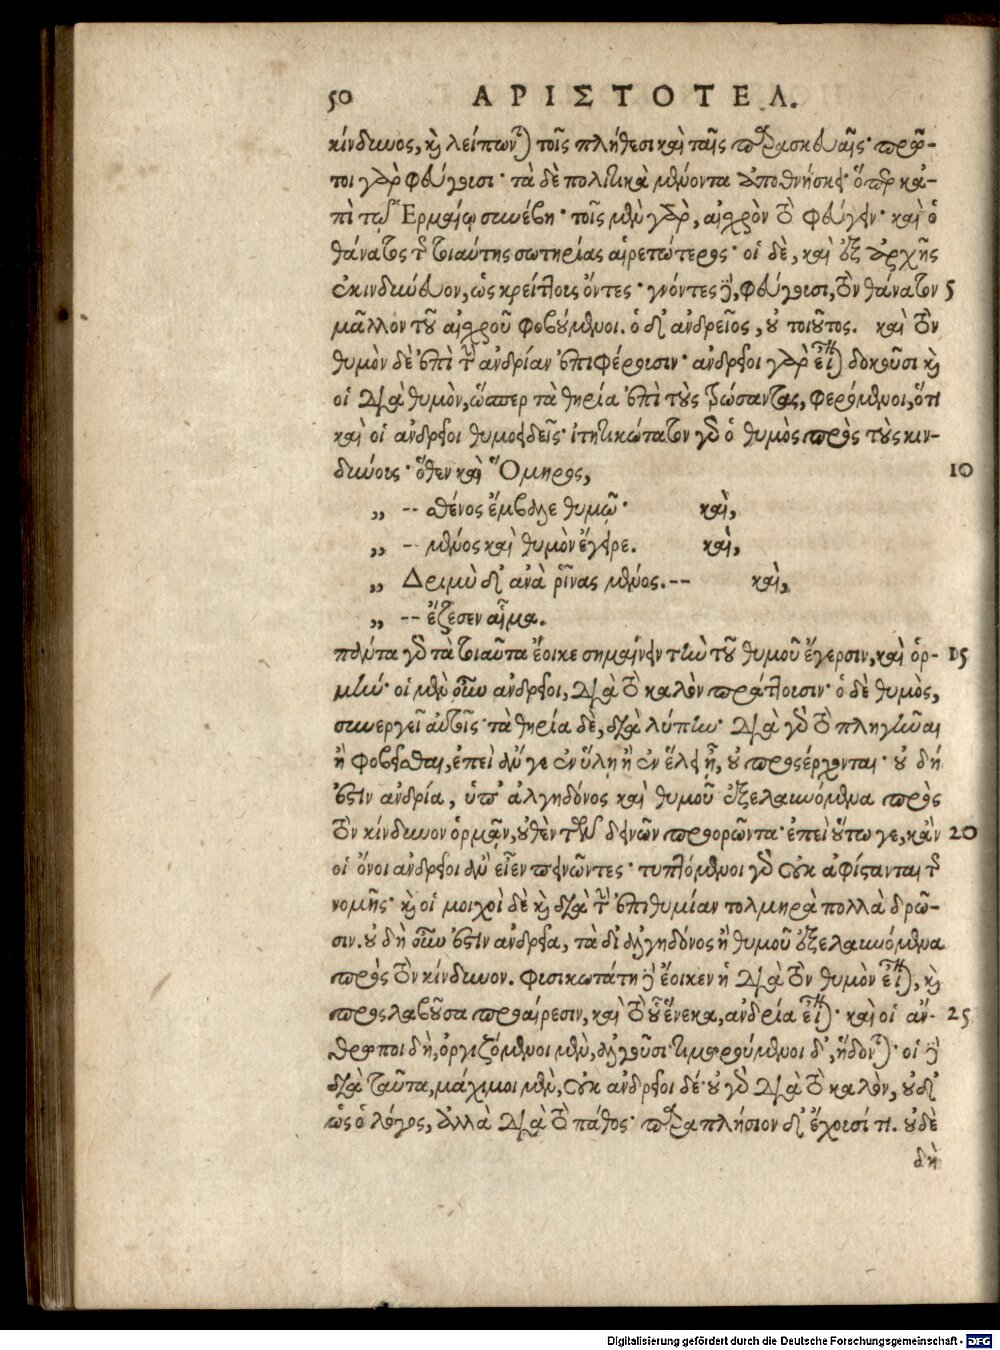 50 ΑΡΙΣΤΟΤΕΛ.
κίνδυνος, καὶ λείπωνται τοῖς πλήθεσι καὶ ταῖς παρασκευαῖς· πρῶ-
τοι γὰρ φεύγουσι· τὰ δὲ πολιτικὰ μένοντα ἀποθνήσκει· ὅπερ κἀ-
πὶ τῷ Ἑρμαίῳ συνέβη· τοῖς μὲν γὰρ, αἰσχρὸν τὸ φεύγειν· καὶ ὁ
θάνατος τῆς τοιαύτης σωτηρίας αἱρετώτερος· οἱ δὲ, καὶ ἐξ ἀρχῆς
ἐκινδύνευον, ὡς κρείττους ὄντες· γνόντες δὲ, φεύγουσι, τὸν θάνατον 5
μᾶλλον τοῦ αἰσχροῦ φοβούμενοι. ὁ δ' ἀνδρεῖος, οὐ τοιοῦτος. καὶ τὸν
θυμὸν δὲ ἐπὶ τὴν ἀνδρίαν ἐπιφέρουσιν· ἀνδρεῖοι γὰρ εἶναι δοκοῦσι καὶ
οἱ διὰ θυμὸν, ὥσπερ τὰ θηρία ἐπὶ τοὺς τρώσαντας, φερόμενοι, ὅτι
καὶ οἱ ἀνδρεῖοι θυμοειδεῖς· ἰτητικώτατον γὰρ ὁ θυμὸς πρὸς τοὺς κιν-
δύνους· ὅθεν καὶ Ὅμηρος, 10
„ -- σθένος ἔμβαλε θυμῷ· καὶ,
„ -- μένος καὶ θυμὸν ἔγειρε. καὶ,
„ Δριμὺ δ' ἀνὰ ῥῖνας μένος. -- καὶ,
„ -- ἔζεσεν αἷμα.
πάντα γὰρ τὰ τοιαῦτα ἔοικε σημαίνειν τὴν τοῦ θυμοῦ ἔγερσιν, καὶ ὁρ- 15
μήν· οἱ μὲν οὖν ἀνδρεῖοι, διὰ τὸ καλὸν πράττουσιν· ὁ δὲ θυμὸς,
συνεργεῖ αὐτοῖς· τὰ θηρία δὲ, διὰ λύπην· διὰ γὰρ τὸ πληγῆναι
ἢ φοβεῖσθαι, ἐπεὶ ἐάν γε ἐν ὕλῃ ἢ ἐν ἕλει ᾖ, οὐ προσέρχονται· οὐ δή
ἐστιν ἀνδρία, ὑπ' ἀλγηδόνος καὶ θυμοῦ ἐξελαυνόμενα πρὸς
τὸν κίνδυνον ὁρμᾷν, οὐθὲν τῶν δεινῶν προορῶντα· ἐπεὶ οὕτω γε, κᾂν 20
οἱ ὄνοι ἀνδρεῖοι ἂν εἶεν πεινῶντες· τυπτόμενοι γὰρ οὐκ ἀφίστανται τῆς
νομῆς· καὶ οἱ μοιχοὶ δὲ καὶ διὰ τὴν ἐπιθυμίαν τολμηρὰ πολλὰ δρῶ-
σιν. οὐ δή οὖν ἐστιν ἀνδρεῖα, τὰ δι' ἀλγηδόνος ἢ θυμοῦ ἐξελαυνόμενα
πρὸς τὸν κίνδυνον. φυσικωτάτη δὲ ἔοικεν ἡ διὰ τὸν θυμὸν εἶναι, καὶ
προσλαβοῦσα προαίρεσιν, καὶ τὸ οὗ ἕνεκα, ἀνδρία εἶναι· καὶ οἱ ἄν- 25
θρωποι δὴ, ὀργιζόμενοι μὲν, ἀλγοῦσι· τιμωρούμενοι δ', ἥδονται· οἱ δὲ
διὰ ταῦτα, μάχιμοι μὲν, οὐκ ἀνδρεῖοι δέ· οὐ γὰρ διὰ τὸ καλὸν, οὐδ'
ὡς ὁ λόγος, ἀλλὰ διὰ τὸ πάθος· παραπλήσιον δ' ἔχουσί τι. οὐδὲ
δὴ
Digitalisierung gefördert durch die Deutsche Forschungsgemeinschaft - DFG